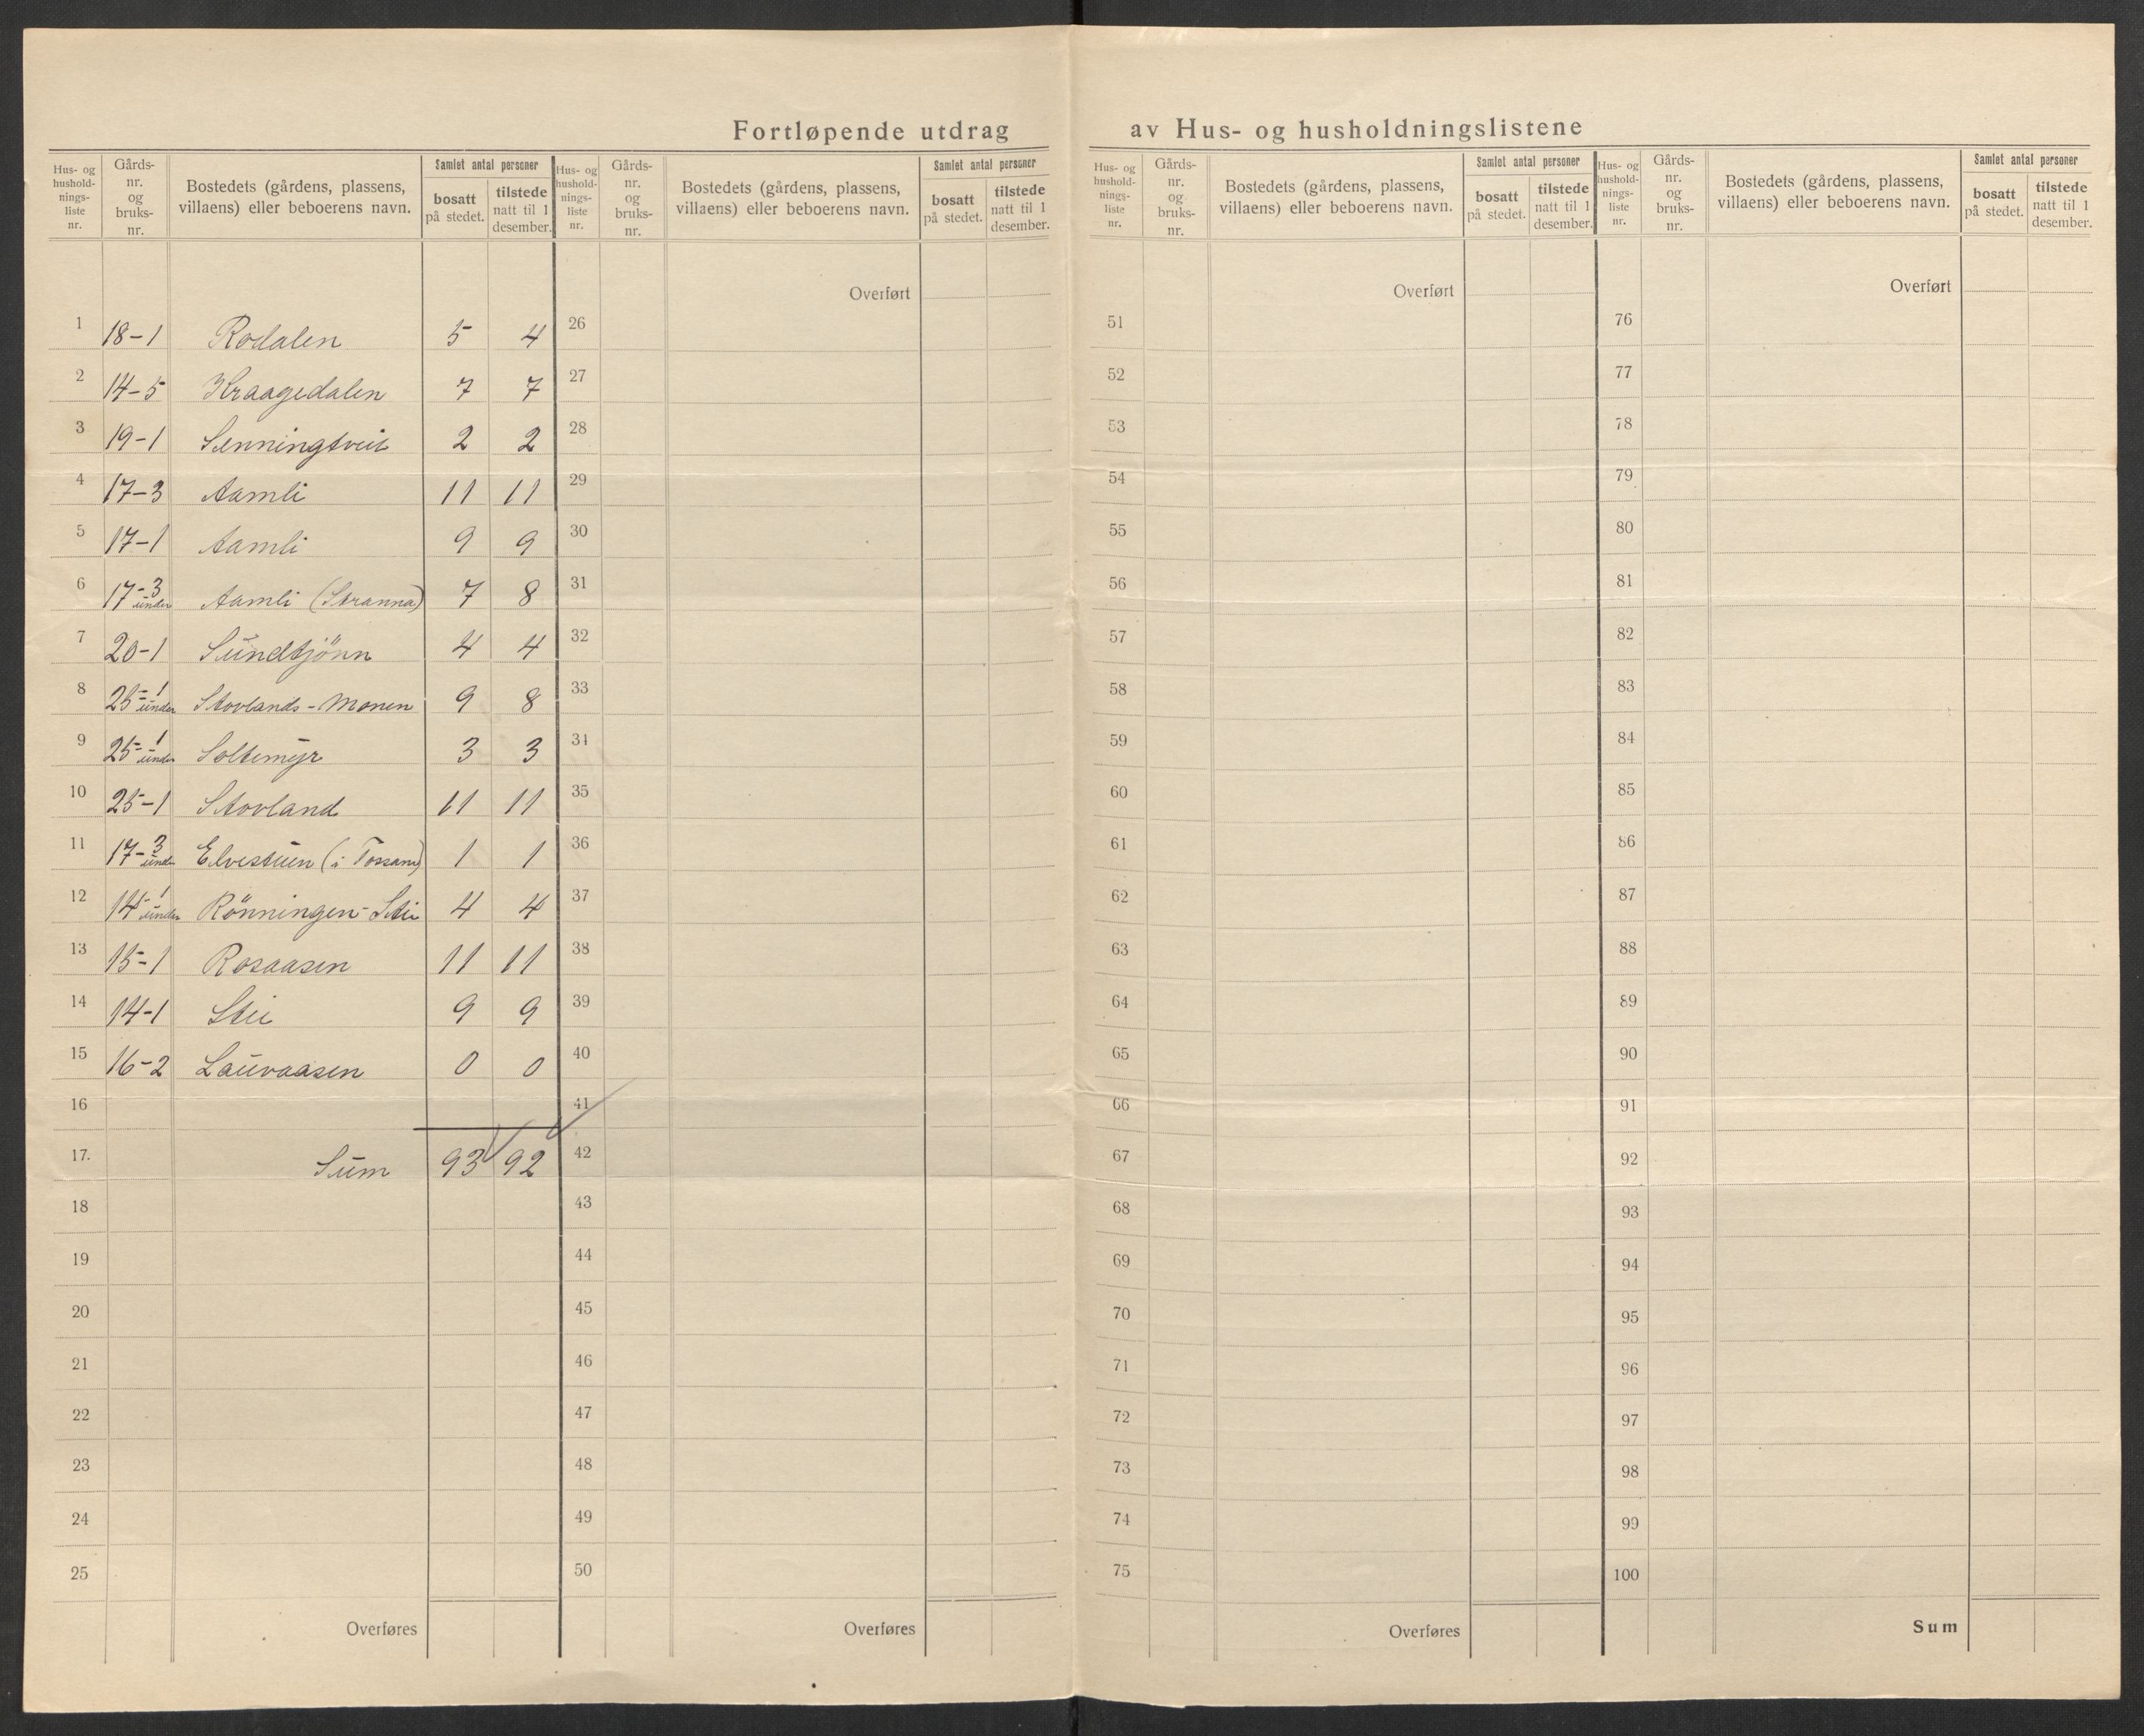 Fortløpende utdrag av Hus- og husholdningslistene
Hus- og hushold- nings- liste nr.
Gårds- nr. og bruks- nr.
Bostedets (gårdens, plassens, villaens) eller beboerens navn.
Samlet antal personer
bosatt på stedet.
tilstede natt til 1 desember.
1 18-1 Rodalen 5 4
2 14-5 Kraagedalen 7 7
3 19-1 2 2
4 17-3 Aamli 11 11
5 17-1 Aamli 9 9
6 17-3 under Aamli (Stranna) 7 8
7 20-1 Sundtjönn 4 4
8 25-1 under Stovlands-Monen 9 8
9 25-1 under Soltemyr 3 3
10 25-1 Stovland 11 11
11 17-3 under Elvestuen (i 1 1
12 14-1 under Rönningen-Stie 4 4
13 15-1 Rosaasen 11 11
14 14-1 Stie 9 9
15 16-2 Lauvaasen 0 0
16
17. Sum 93 92
18
19
20
21
22
23
24
25
Overføres
Hus- og hushold- nings- liste nr.
Gårds- nr. og bruks- nr.
Bostedets (gårdens, plassens, villaens) eller beboerens navn.
Samlet antal personer
bosatt på stedet.
tilstede natt til 1 desember.
Overført
26
27
28
29
30
31
32
33
34
35
36
37
38
39
40
41
42
43
44
45
46
47
48
49
50
Overføres
Hus- og hushold- nings- liste nr.
Gårds- nr. og bruks- nr.
Bostedets (gårdens, plassens, villaens) eller beboerens navn.
Samlet antal personer
bosatt på stedet.
tilstede natt til 1 desember.
Overført
51
52
53
54
55
56
57
58
59
60
61
62
63
64
65
66
67
68
69
70
71
72
73
74
75
Overføres
Hus- og hushold- nings- liste nr.
Gårds- nr. og bruks- nr.
Bostedets (gårdens, plassens, villaens) eller beboerens navn.
Samlet antal personer
bosatt på stedet.
tilstede natt til 1 desember.
Overført
76
77
78
79
80
81
82
83
84
85
86
87
88
89
90
91
92
93
94
95
96
97
98
99
100
Sum